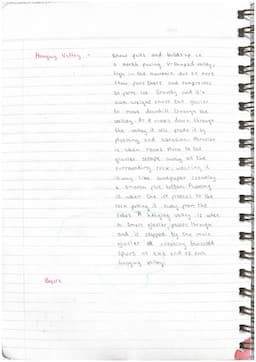 Hanging Valley - Snow falls and builds up in
a north facing V-shaped valley,
high in the mountain. As it more
snow joins there and compresses
to form ice. Gravity and it's
own weight cause the glacier
to move downhill through the
valley. As it moves down through
the valley it will erode it by
plucking and abrasion. Abrasion
is when rocks stuck to the
glacier scrape away at the
surrounding rock, wearing it
away like sandpaper creating
a smooth flat bottom. Plucking
is when the ice freezes to the
rock pulling it away from the
sides. A hanging valley is when
a small glacier passes through
and is stopped by the main
glacier creating truncated
spurs at the end of each
hanging valley.